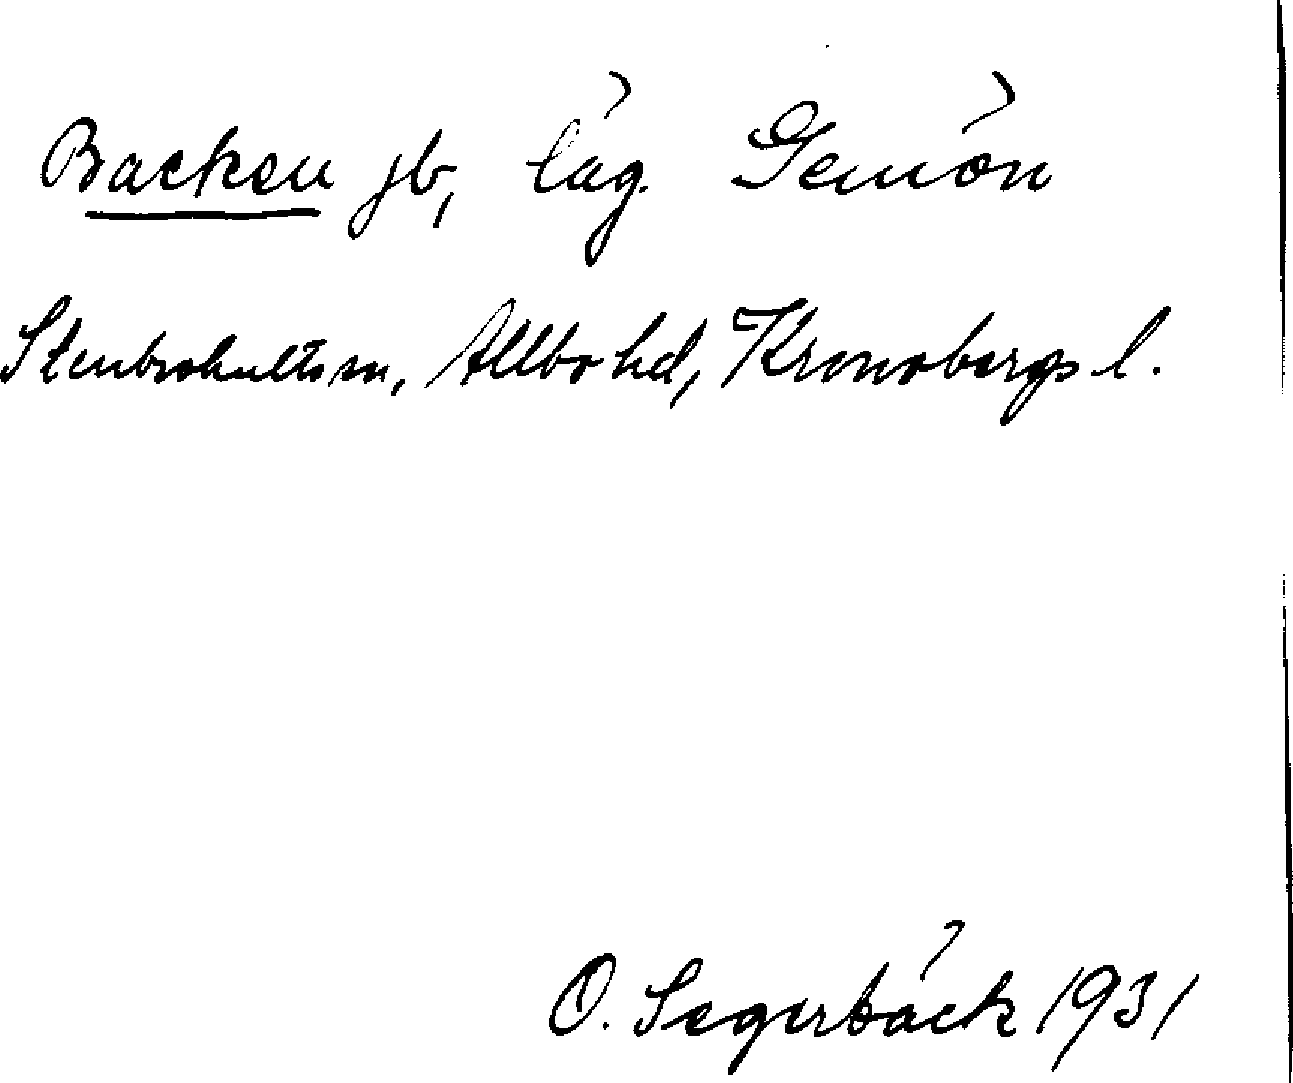 Backen jb, läg. Gemön
Stenbrohults sn, Allbo hd, Kronobergs l.
O. Segerbäck 1931